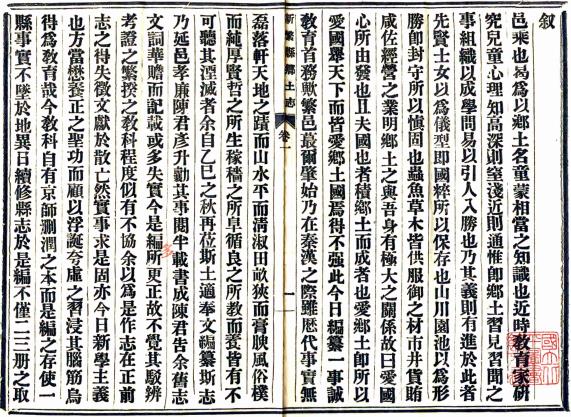 叙
邑乘也曷為以鄉土名童蒙相當之知識也近時教育家研
究兒童心理知高深則窒淺近則通惟卽鄉土習見習聞之
事組織以成學問易以引人入勝也乃其義則有進於此者
先賢士女以為儀型卽國粹所以保存也山川園池以為形
勝卽封守所以愼固也蟲魚草木皆供服御之材市井貨賄
咸佐經營之業明鄉土之與吾身有極大之關係故曰愛國
心所由發也且夫國也者積鄉土而成者也愛鄉土卽所以
愛國舉天下而皆愛鄉土國焉得不強此今日編纂一事誠
教育首務歟繁邑蕞爾肇始乃在秦漢之際雖歷代事實無
新繁縣鄉土志
卷一
一
磊落軒天地之蹟而山水平而清淑田畝狹而膏腴風俗樸
而純厚賢哲之所生稼穡之所阜循良之所教而養皆有不
可聽其湮滅者余自乙巳之秋再莅斯土適奉文編纂斯志
乃延邑孝廉陳君彥升勷其事閱半載書成陳君告余舊志
文詞華贍而記載或多失實今是編多所更正故不覺其駁辨
考證之繁揆之教科程度似有不協余以為是作志在正前
志之得失徵文獻於散亡然實事求是固亦今日新學主義
也方當懋養正之聖功而顧以浮誕夸虛之習浸其腦筋烏
得為教育哉今教科自有京師刪潤之本而是編之存使一
縣事實不墜於地異日續修縣志於是編不僅二三册之取